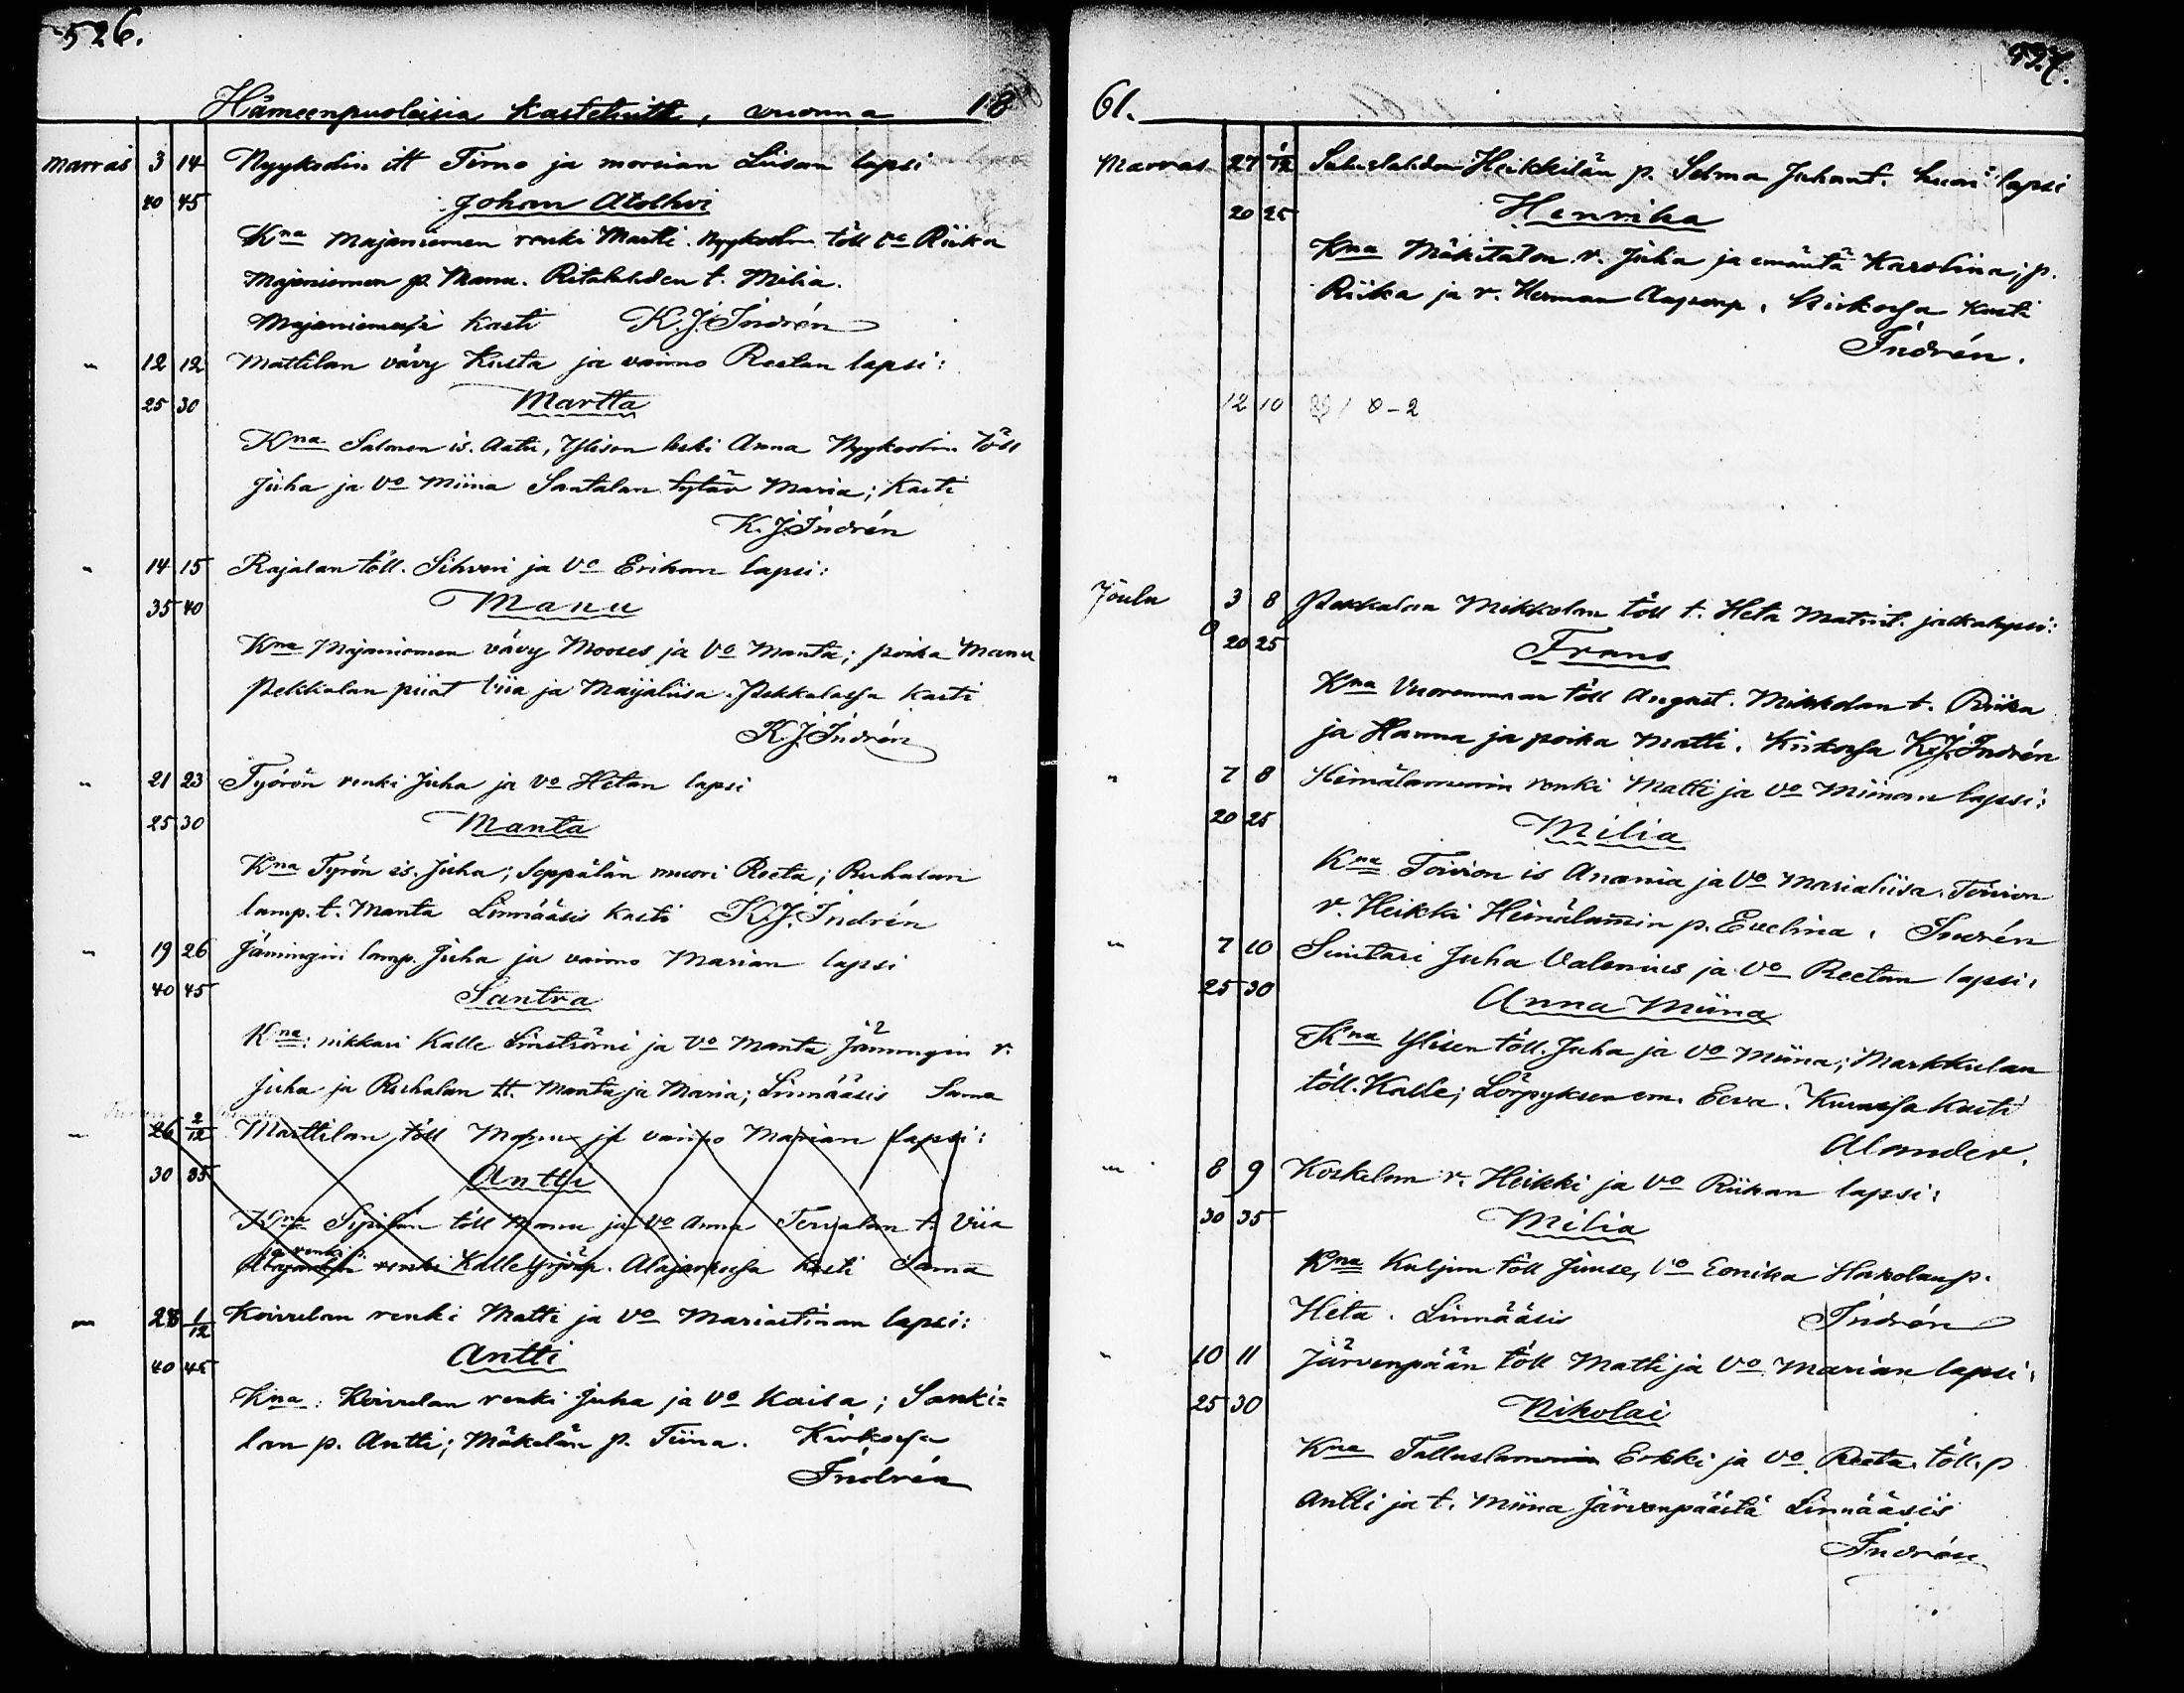 526.
Hämeenpuoleisia kastetuitt, vuonna 18
marras 3 14 Nyykodin itt Timo ja morsian Liisan lapsi
40 45 Johan Atolhvi
Kna Majaniemen renki Martti. Nyykodin töll vo Riika
Majaniemen p. Manu. Ritalahden t. Milia.
Majaniemessä kasti K. J. Indrén
" 12 12 Mattilan vävy Kusta ja vaimo Reetan lapsi:
25 30 Martta
Kna Salmen is. Aatu, Ylisen leski Anna Nyykodin töll
Juha ja Vo Miina Santalan tytär Maria; kasti
K. J. Indrén
" 14 15 Rajalan töll. Sihveri ja Vo Erikan lapsi:
35 40 Manu
Kna Majaniemen vävy Mooses ja Vo Manta; poika Manu
Pekkalan piiat Viia ja Maijaliisa. Pekkalassa kasti
K J. Indrén
" 21 23 Työrön renki Juha ja Vo Hetan lapsi
25 30 Manta
Kna Tyrön is. Juha; Seppälän muori Reeta; Ruhalan
lamp. t. Manta Linnääsis kasti K. J. Indrén
" 19 26 Jämingin lamp. Juha ja vaimo Marian lapsi
40 45 Santra
Kna: nikkari Kalle Linströmi ja Vo Manta Jämingin r.
Juha ja Ruhalan tt. Manta ja Maria; Linnääsis Sama
" 26 2/12 Marttilan töll Manu ja vaimo Marian lapsi:
30 35 Antti
Kna Sipilän töll Manu ja Vo Anna Tervalan t. Viia
ja renki
renki Kalle Yrjönp. Alajärvessä kasti Sama
" 28 1/12 Koivulan renki Matti ja Vo Mariastiinan lapsi:
40 45 Antti
Kna: Koivulan renki Juha ja Vo Kaisa; Sanki=
lan p. Antti; Mäkelän p. Tiina. Kirkossa
Indrén
527.
61.
Marras 27 1/12 Heikkilän p. Selma Juhant. lapsi
20 25 Henrika
Kna Mäkitalon r. Juha ja emäntä Karolina; p.
Riika ja r. Herman Aapronp. Kirkossa kasti
Indrén.
12 10
Joulu 3 8 Pekkalan Mikkolan töll t. Heta Matint. lapsi:
0 20 25 Frans
Kna Vuorenmaan töll August. Mikkolan t. Riika
ja Hanna ja poika Matti. Kirkossa K. J. Indrén
" 7 8 Heinälammin renki Matti ja Vo Miinan lapsi:
20 25 Milia
Kna Toivion is Anania ja Vo Marialiisa. Toivion
r. Heikki Heinälammin p. Evelina. Indrén
" 7 10 Suutari Juha Valenius ja Vo Reetan lapsi:
25 30 Anna Miina
Kna Ylisen töll. Juha ja Vo Miina; Markkulan
töll. Kalle; Lörpyksen em. Eeva. Kurussa kasti
Alander.
" 8 9 Koskelan r. Heikki ja Vo Riikan lapsi:
30 35 Milia
Kna Kuljun töll Juuse, Vo Eerika Hakolan p.
Heta. Linnääsis Indrén
" 10 11 Järvenpään töll Matti ja Vo Marian lapsi:
25 30 Nikolai
Kna Talluslammin Erkki ja Vo Reeta. töll. p
Antti ja t. Miina Järvenpäästä Linnääsis
Indrén